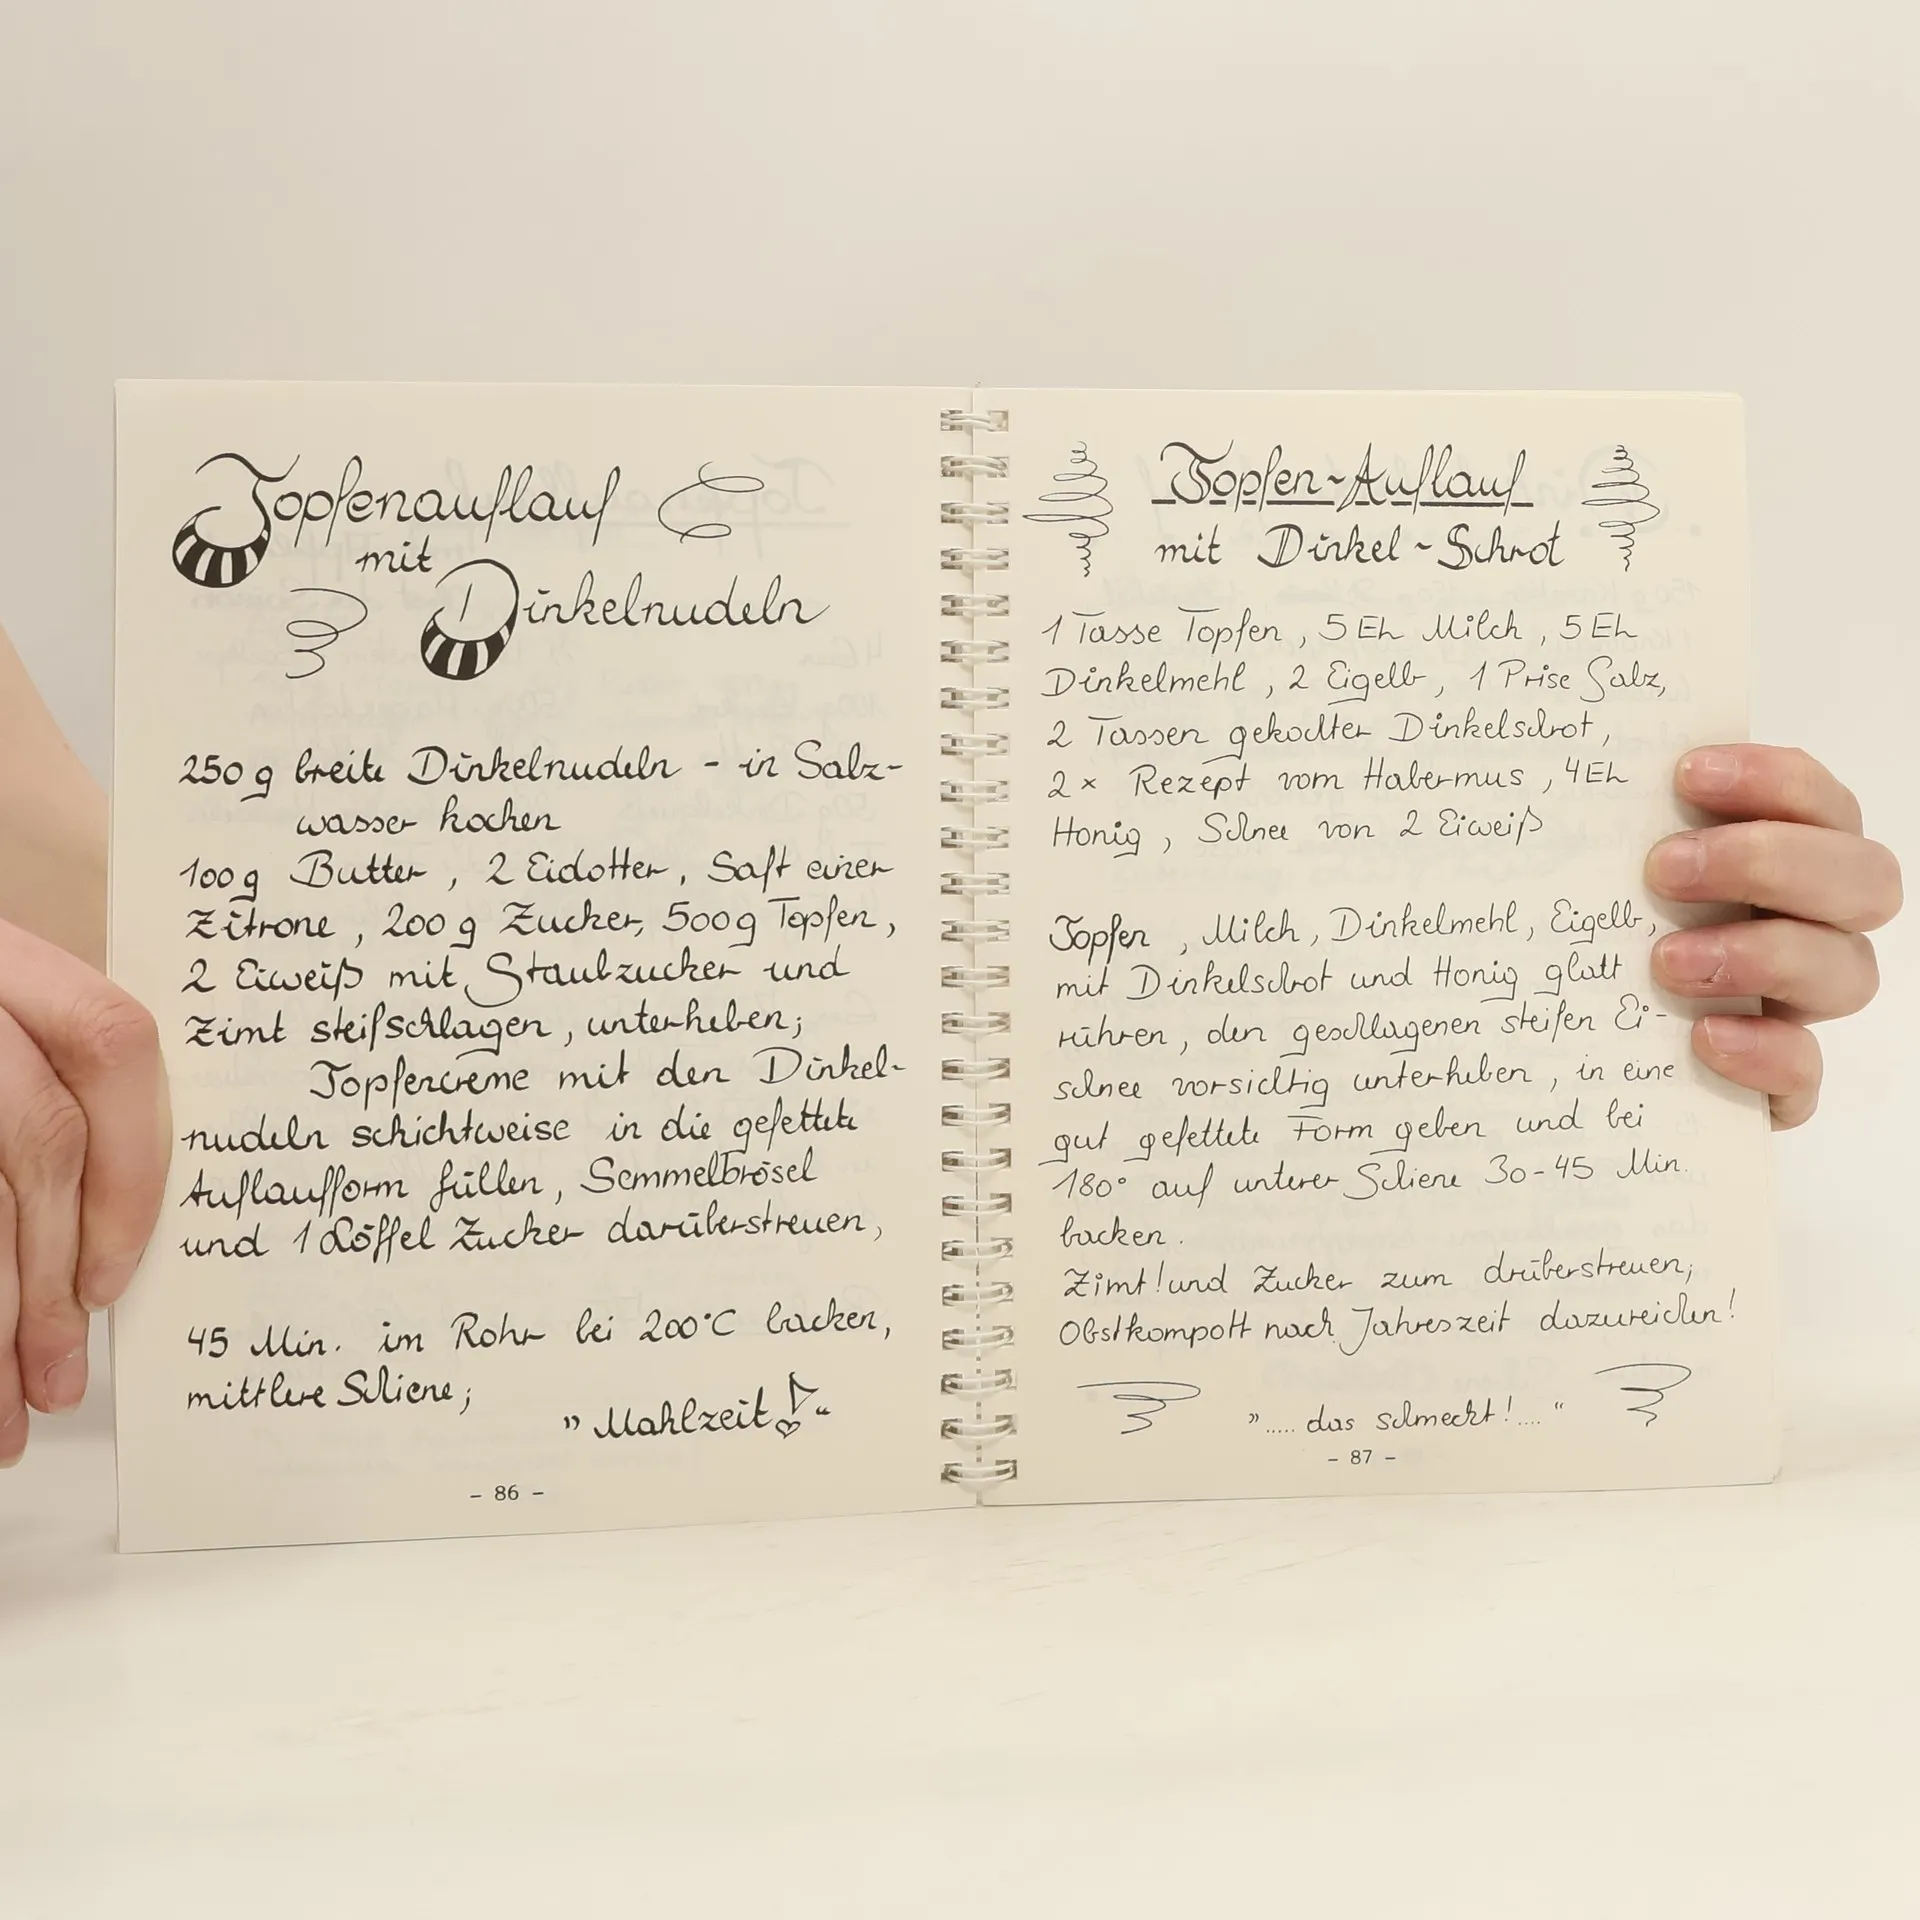 Topfenauflauf
mit
Dinkelnudeln
250 g breite Dinkelnudeln - in Salz-
wasser kochen
100 g Butter, 2 Eidotter, Saft einer
Zitrone, 200 g Zucker, 500 g Topfen,
2 Eiweiß mit Staubzucker und
Zimt steifschlagen, unterheben;
Topfencreme mit den Dinkel-
nudeln schichtweise in die gefettete
Auflaufform füllen, Semmelbrösel
und 1 Löffel Zucker darüberstreuen,
45 Min. im Rohr bei 200°C backen,
mittlere Schiene;
"Mahlzeit!"
- 86 -
Topfen-Auflauf
mit Dinkel-Schrot
1 Tasse Topfen, 5 EL Milch, 5 EL
Dinkelmehl, 2 Eigelb, 1 Prise Salz,
2 Tassen gekochter Dinkelschrot,
2 x Rezept vom Habermus, 4 EL
Honig, Schnee von 2 Eiweiß
Topfen, Milch, Dinkelmehl, Eigelb,
mit Dinkelschrot und Honig glatt
rühren, den geschlagenen steifen Ei-
schnee vorsichtig unterheben, in eine
gut gefettete Form geben und bei
180° auf unterer Schiene 30-45 Min.
backen.
Zimt! und Zucker zum drüberstreuen;
Obstkompott nach Jahreszeit dazureichen!
"..... das schmeckt!...."
- 87 -